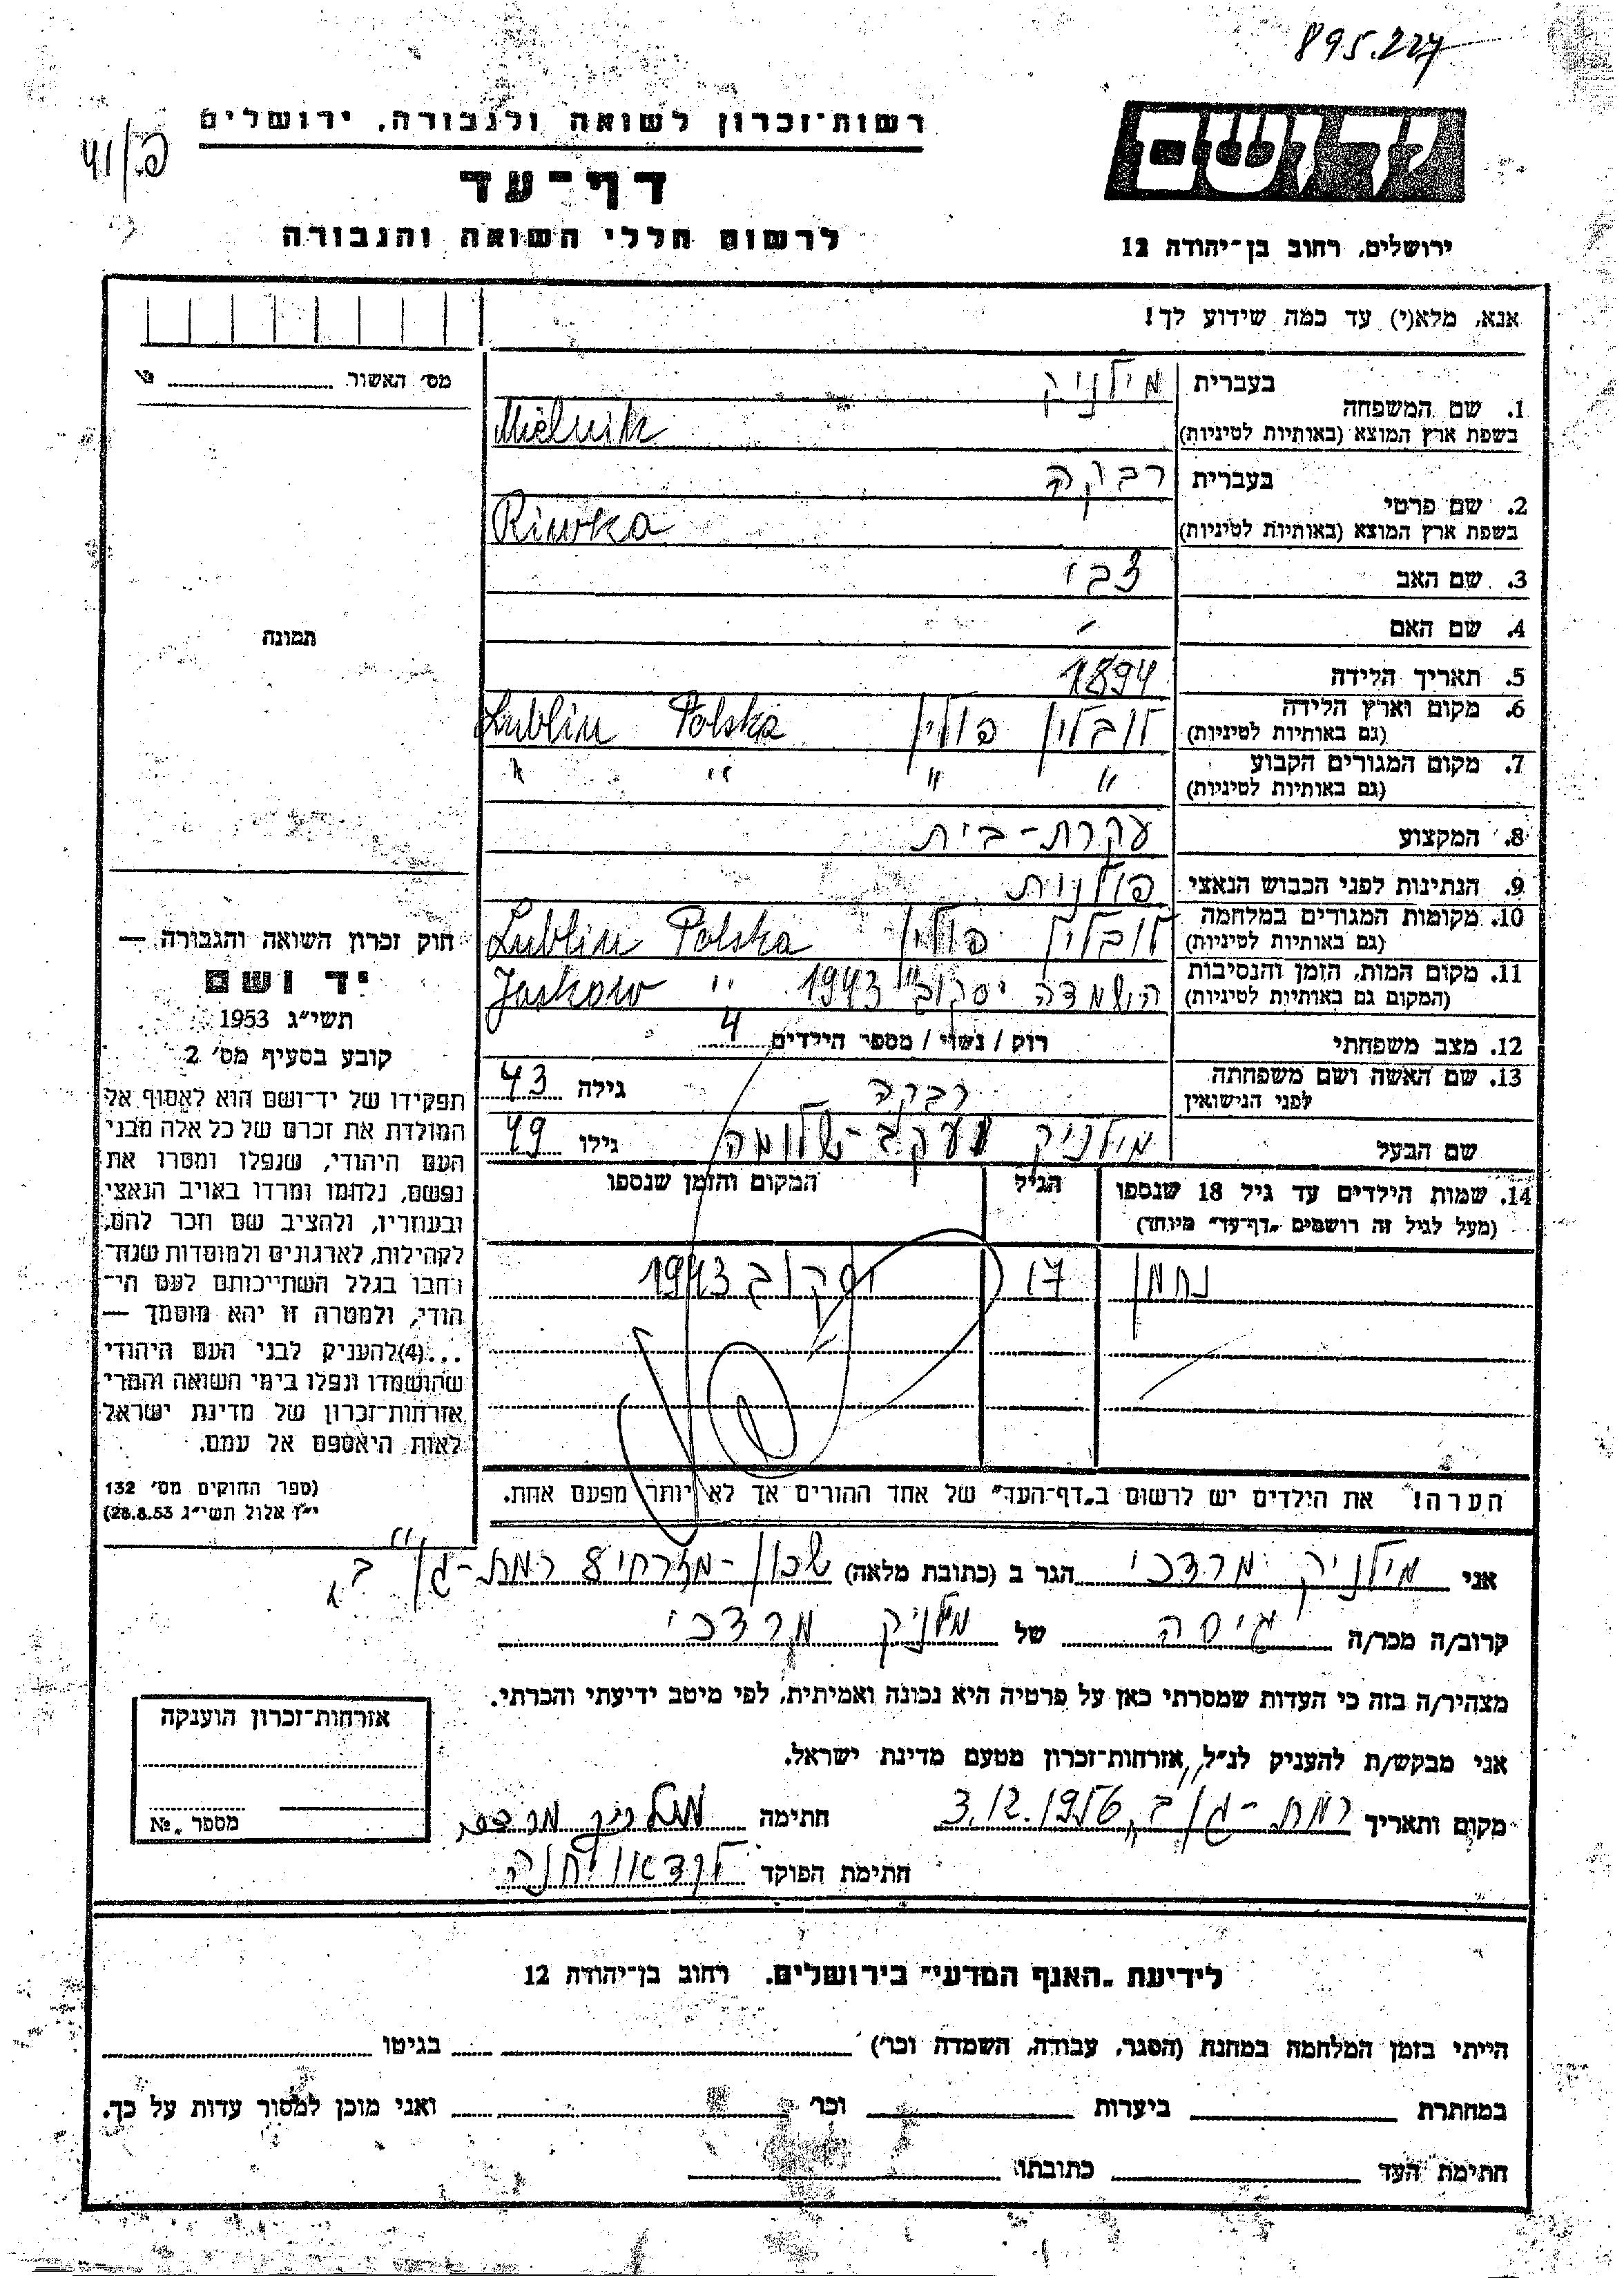 895.227
רשות־זכרון לשואה ולגבורה, ירושלים
דף־עד
לרשום חללי השואה והגבורה
ידושם
ירושלים, רחוב בן־יהודה 12
אנא, מלא(י) עד כמה שידוע לך!
מס׳ האשור
1. שם המשפחה
בעברית מילניק
בשפת ארץ המוצא (באותיות לטיניות) Mielnik
2. שם פרטי
בעברית רבקה
בשפת ארץ המוצא (באותיות לטיניות) Riwka
3. שם האב צבי
4. שם האם -
תמונה
5. תאריך הלידה 1894
6. מקום וארץ הלידה לובלין פולין Lublin Polska
(גם באותיות לטיניות)
7. מקום המגורים הקבוע " " " "
(גם באותיות לטיניות)
8. המקצוע עקרת-בית
9. הנתינות לפני הכבוש הנאצי פולנית
10. מקומות המגורים במלחמה לובלין פולין Lublin Polska
(גם באותיות לטיניות)
11. מקום המות, הזמן והנסיבות הושמדה יסקוב 1943 " Jaskow
(המקום גם באותיות לטיניות)
12. מצב משפחתי רווק / נשוי / מספר הילדים 4
13. שם האשה ושם משפחתה רבקה גילה 43
לפני הנישואין
שם הבעל מילניק יעקב-שלומה גילו 49
14. שמות הילדים עד גיל 18 שנספו הגיל המקום והזמן שנספו
(מעל לגיל זה רושמים „דף־עד״ מיוחד)
נחמן 17 יסקוב 1943
הערה! את הילדים יש לרשום ב„דף־העד״ של אחד ההורים אך לא יותר מפעם אחת.
חוק זכרון השואה והגבורה —
יד ושם
תשי״ג 1953
קובע בסעיף מס׳ 2
תפקידו של יד־ושם הוא לאסוף אל
המולדת את זכרם של כל אלה מבני
העם היהודי, שנפלו ומסרו את
נפשם, נלחמו ומרדו באויב הנאצי
ובעוזריו, ולהציב שם וזכר להם,
לקהילות, לארגונים ולמוסדות שנח־
רבו בגלל השתייכותם לעם הי־
הודי, ולמטרה זו יהא מוסמך —
...(4)להעניק לבני העם היהודי
שהושמדו ונפלו בימי השואה והמרי
אזרחות־זכרון של מדינת ישראל
לאות היאספם אל עמם.
(ספר החוקים מס׳ 132
י״ז אלול תשי״ג 28.8.53)
אני מילניק מרדכי הגר ב (כתובת מלאה) שכון-מזרחי רמת-גן ב
קרוב/ה מכר/ה גיסה של מילניק מרדכי
מצהיר/ה בזה כי העדות שמסרתי כאן על פרטיה היא נכונה ואמיתית, לפי מיטב ידיעתי והכרתי.
אני מבקש/ת להעניק לנ״ל אזרחות־זכרון מטעם מדינת ישראל.
מקום ותאריך רמת-גן ב, 3.12.1956 חתימה מילניק מרדכי
חתימת הפוקד לנדאו חנה
אזרחות־זכרון הוענקה
מספר „ №
לידיעת „האגף המדעי״ בירושלים. רחוב בן־יהודה 12
הייתי בזמן המלחמה במחנה (הסגר, עבודה, השמדה וכו׳) בגיטו
במחתרת ביערות וכו׳ ואני מוכן למסור עדות על כך.
חתימת העד כתובתו